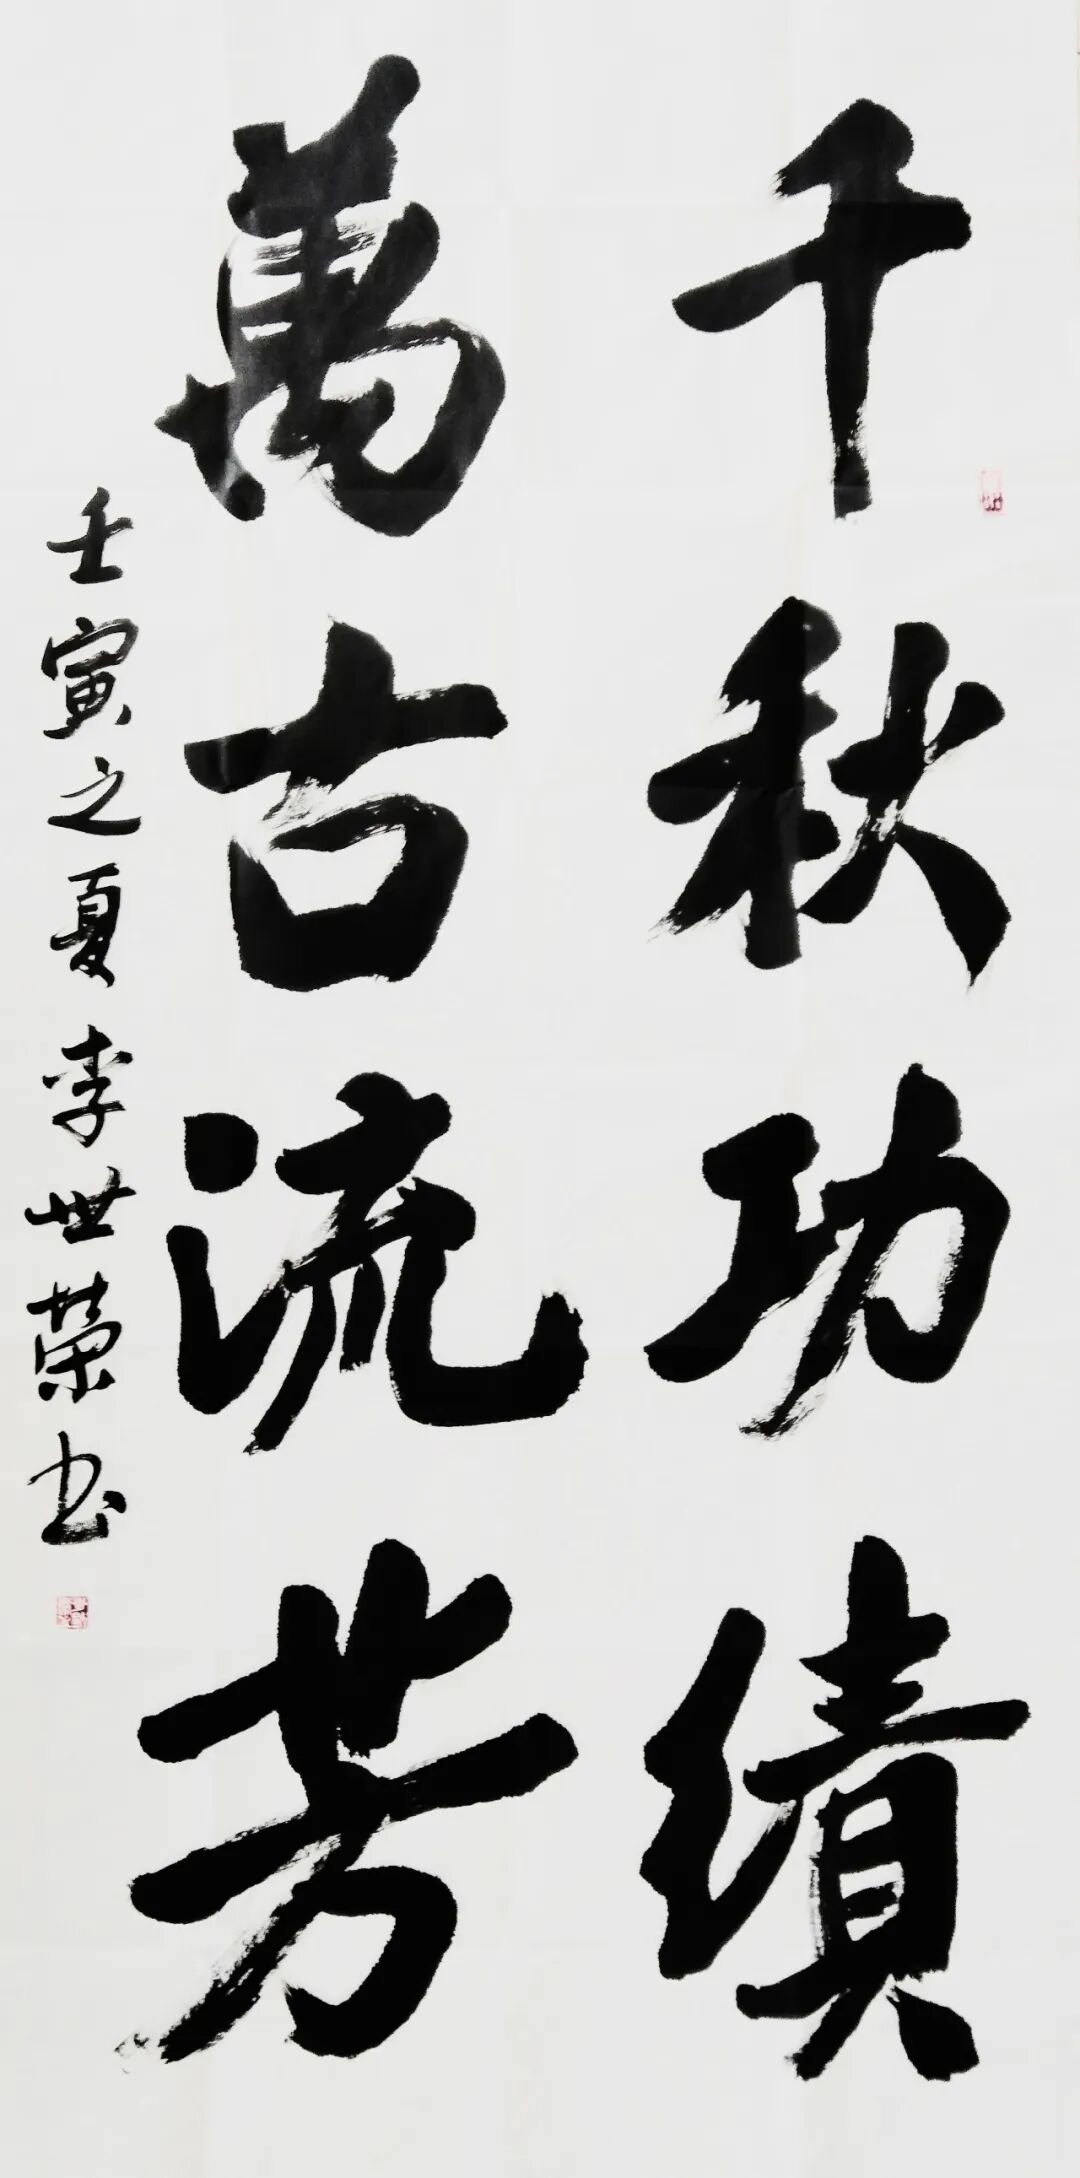 千秋功績
萬古流芳
壬寅之夏李世荣书